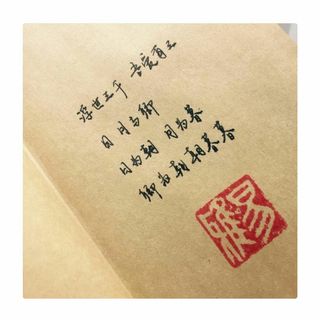 浮世三千 吾爱有三
日月与卿
日为朝 月为暮
卿为朝朝暮暮